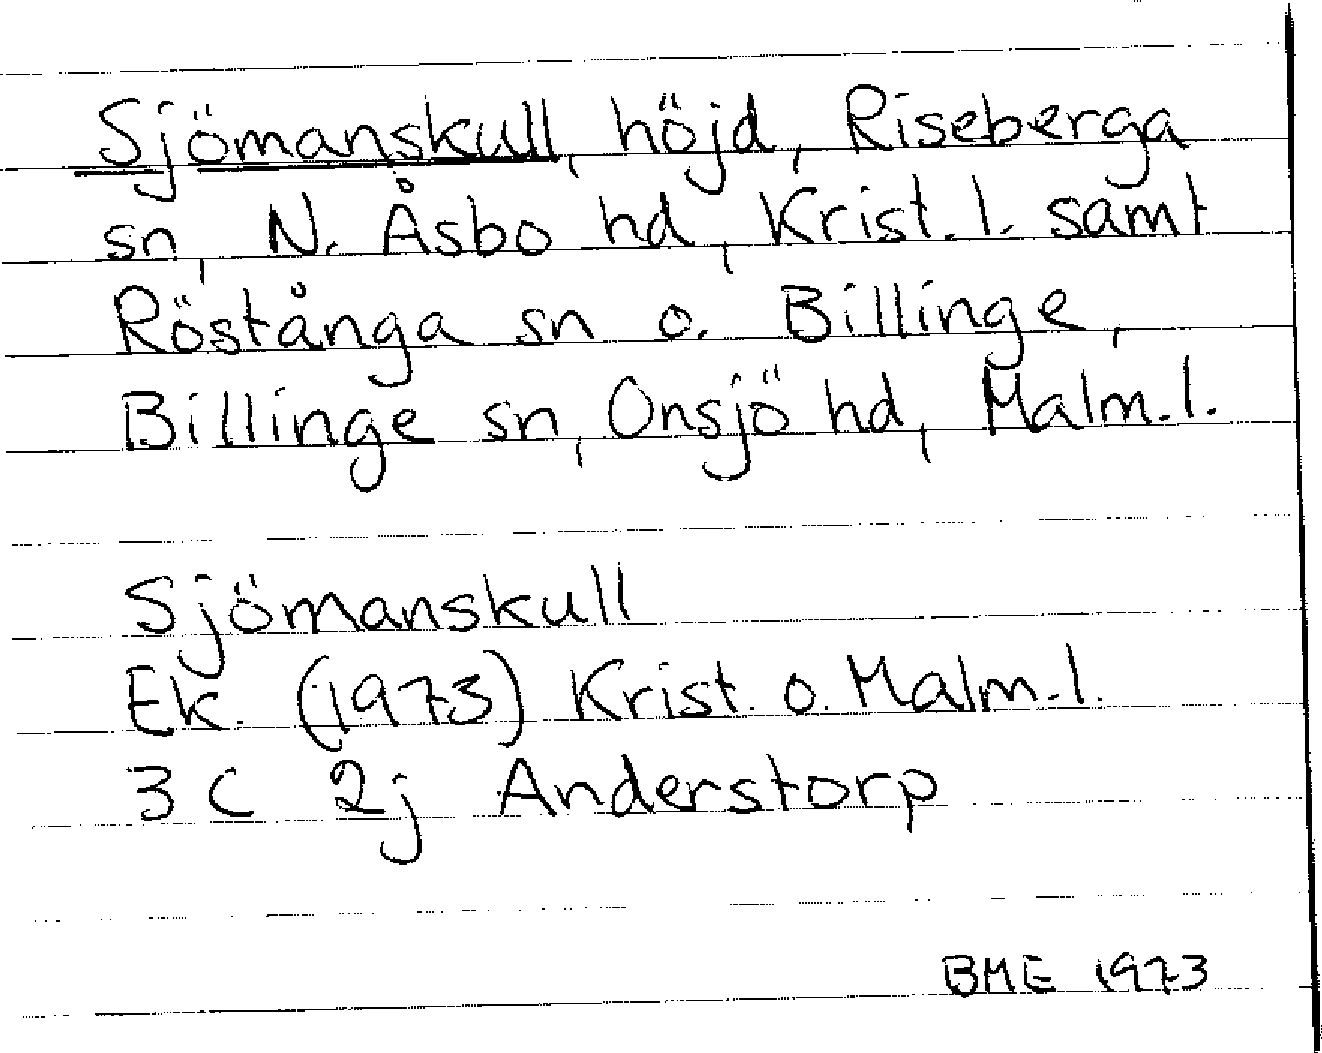 Sjömanskull, höjd, Riseberga
sn, N. Åsbo hd, Krist. l. samt
Röstånga sn o. Billinge,
Billinge sn, Onsjö hd, Malm. l.
Sjömanskull
Ek. (1973) Krist. o. Malm. l.
3 C 2j Anderstorp
BME 1973